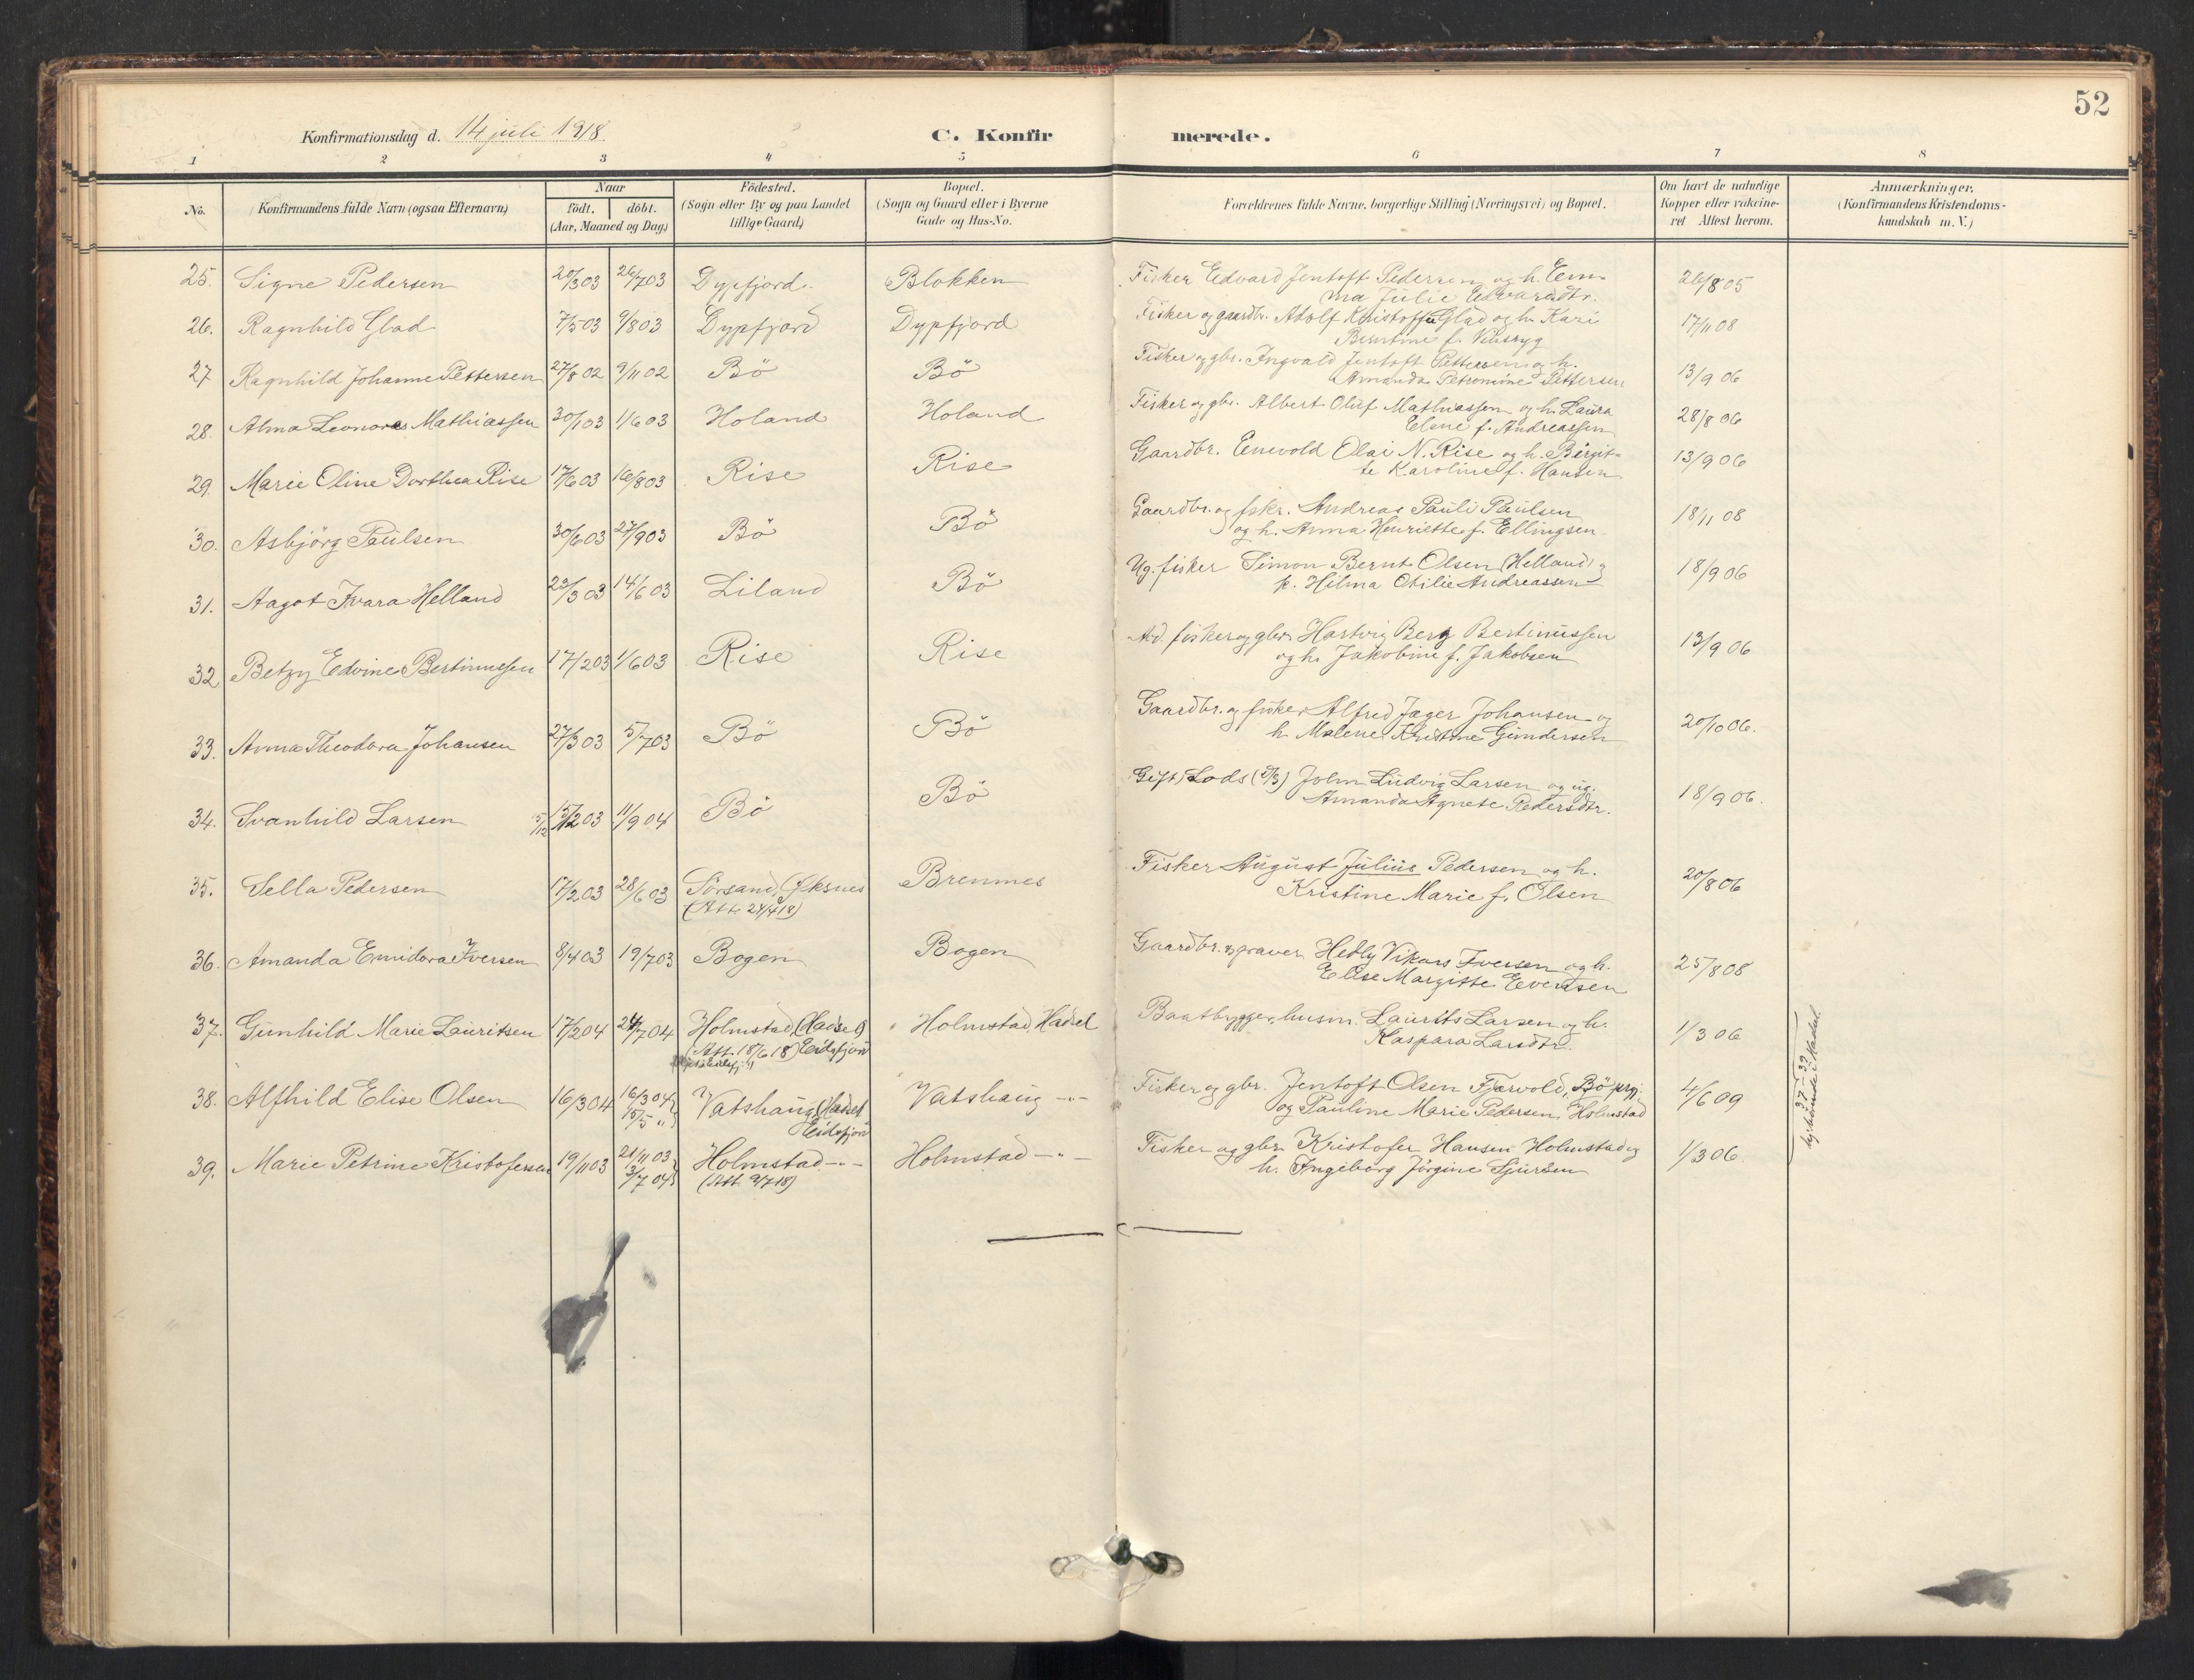 52
Konfirmationsdag d. 14 juli 1918.
C. Konfirmerede.
1 2 3 4 5 6 7 8
No.
Konfirmandens fulde Navn (ogsaa Efternavn)
Naar
født. døbt.
(Aar, Maaned og Dag)
Födested.
(Sogn eller By og paa Landet
tillige Gaard)
Bopæl.
(Sogn og Gaard eller i Byerne
Gade og Hus-No.
Forældrenes fulde Navne, borgerlige Stilling (Næringsvei) og Bopæl.
Om havt de naturlige
Kopper eller vakcine-
ret Attest herom.
Anmærkninger.
(Konfirmandens Kristendoms-
kundskab m.V.)
25. Signe Pedersen 20/3 03 26/7 03 Dypfjord. Blokken Fisker Edvard Jentoft Pedersen og h. Em- 26/8 05
ma Julie Edvardsdtr.
26. Ragnhild Glad 7/5 03 9/8 03 Dypfjord Dypfjord Fisker og gaardbr. Adolf Kristoffer Glad og h. Kari 17/11 08
Berntine f.
27 Ragnhild Johanne Pettersen 27/8 02 9/11 02 Bö Bö Fisker og gbr. Ingvald Jentoft Pettersen og h. 13/9 06
Amanda Petronine Pettersen
28. Alma Leonore Mathiassen 30/1 03 1/6 03 Holand Holand Fisker og gbr. Albert Oluf Mathiassen og h. Laura 28/8 06
Elene f. Andreassen
29. Marie Oline Dorthea Rise 17/6 03 16/8 03 Rise Rise Gaardbr. Enevold Olai N. Rise og h. Birgit- 13/9 06
te Karoline f. Hansen
30. Asbjörg Paulsen 30/6 03 27/9 03 Bö Bö Gaardbr. og fskr. Andreas Pauli Paulsen 18/11 08
og h. Anna Henriette f. Ellingsen
31. Aagot Ivara Helland 22/3 03 14/6 03 Liland Bö Ug. fisker Simon Bernt Olsen (Helland) og 18/9 06
p. Hilma Otilie Andreassen
32. Betzy Edvine Bertinussen 17/2 03 1/6 03 Rise Rise fisker og gbr. Hartvig Berg Bertinussen 13/9 06
og h. Jakobine f. Jakobsen
33. Anna Theodora Johansen 27/3 03 5/7 03 Bö Bö Gaardbr. og fisker Alfred Jæger Johansen og 20/10 06.
h. Malene Kristine Gundersen
34. Svanhild Larsen 5/12 03 11/9 04 Bö Bö Gift) Lods John Ludvig Larsen og ug. 18/9 06.
Amanda Agnete Pedersdtr.
35. Sella Pedersen 17/2 03 28/6 03 Sörsand, Øksnes Brennes Fisker August Julius Pedersen og h. 20/8 06
(Att. 24/4 18) Kristine Marie f. Olsen
36. Amanda Emidora Iversen 8/4 03 19/7 03 Bogen Bogen Gaardbr. og graver Hedly Vikars Iversen og h. 25/8 08
Elise Margitte Evensen
37. Gunhild Marie Lauritsen 17/2 04 24/7 04 Holmstad (Hadsel) Holmstad, Hadsel Baatbygger, husm. Laurits Larsen og h. 1/3 06
(Att. 18/6 18) Eidsfjord Kaspara Larsdtr.
38. Alfhild Elise Olsen 16/3 04 16/3 04 Vatshaug (Hadsel Vatshaug -"- Fisker og gbr. Jentoft Olsen Fjærvold, Bö prgj. 4/6 09
15/5 " Eidsfjord og Pauline Marie Pedersen, Holmstad
39. Marie Petrine Kristofersen 19/11 03 21/11 03 Holmstad -"- Holmstad -"- Fisker og gbr. Kristofer Hansen Holmstad og 1/3 06
3/7 04 (Att. 9/7 18) h. Ingeborg Jörgine Sjursen
37-39